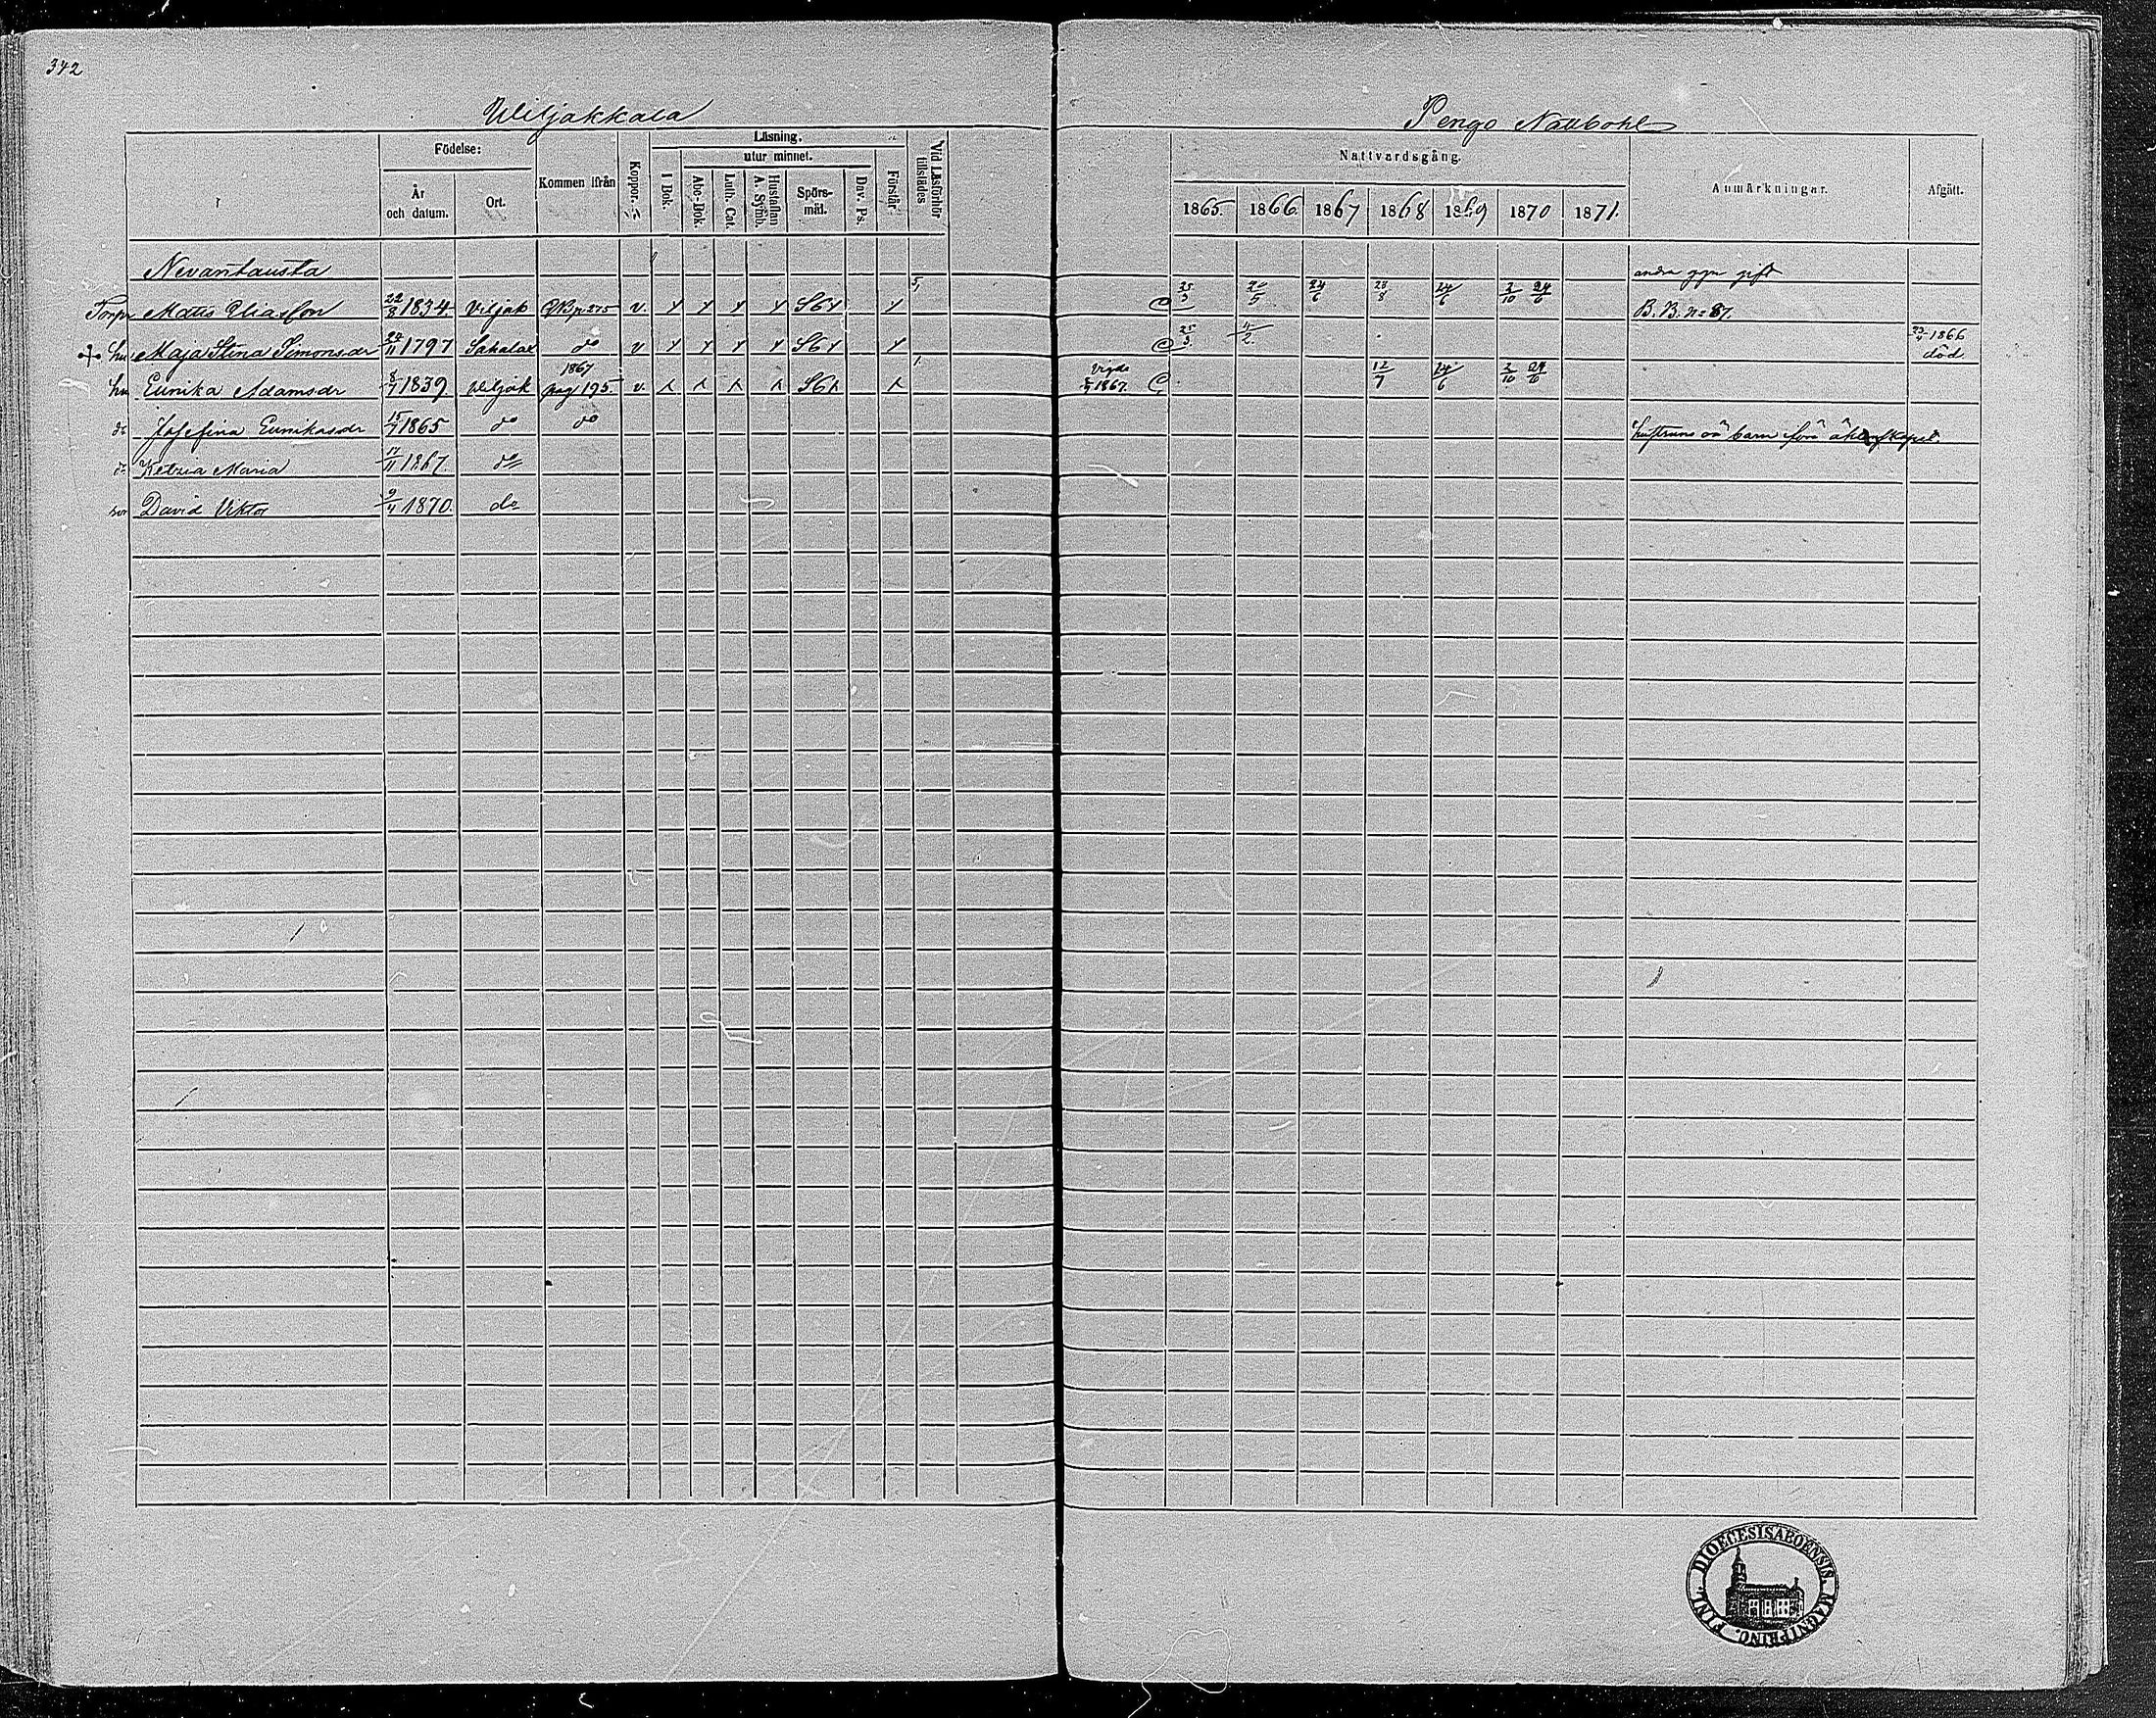 342
Wiljakkala
Pengo Nallbohl
Födelse:
År och datum.
Ort.
Kommen ifrån
Koppor.
Läsning.
I Bok.
utur minnet.
Abc-Bok.
Luth. Cat.
Hustaflan A. Symb.
Spörs-mål.
Dav. Ps.
Förstår.
Vid Läsförhör tillstädes
Nattvardsgång.
1865. 1866. 1867 1868 1869 1870 1871.
Anmärkningar.
Afgått.
Nevantausta
andra ggn gift
Torpr Matts Eliasson 22/8 1834 Viljak p 275 v. S6 25/3 20/5 24/6 28/8 24/6 2/10 24/6 B. B. n:o 87.
hu Maja Stina Simonsdr 1797 Sahalax do v S6 25/3 4/2 1866 död.
hu Eunika Adamsdr 8/7 1839. Wiljak 1867 pag 195. v. S6 vigde 1867. 12/7 24/6 2/10 24/6
dr Josefina Eunikasdr 15/7 1865 do do hustruns oä barn före äktenskapet.
dr Ketzia Maria 17/11 1867. do
son David Viktor 9/4 1870. do
FINL. DIOECESIS ABOENSIS. MAGNI PRINC.